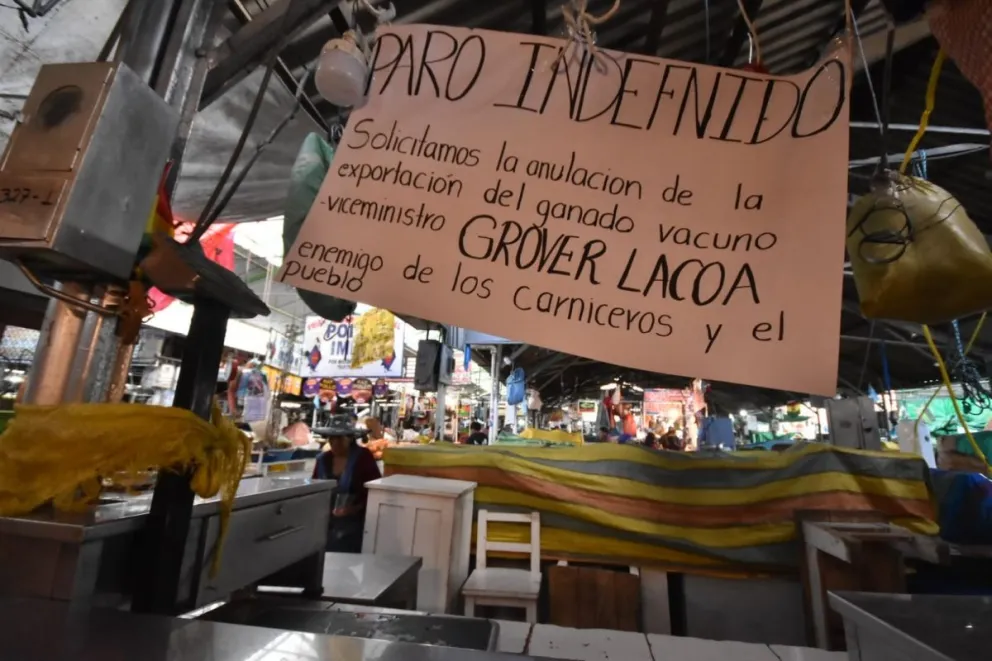 PARO INDEFNIDO
Solicitamos la anulacion de la
exportación del ganado vacuno
-viceministro GROVER LACOA
enemigo de los carniceros y el
pueblo
327-1